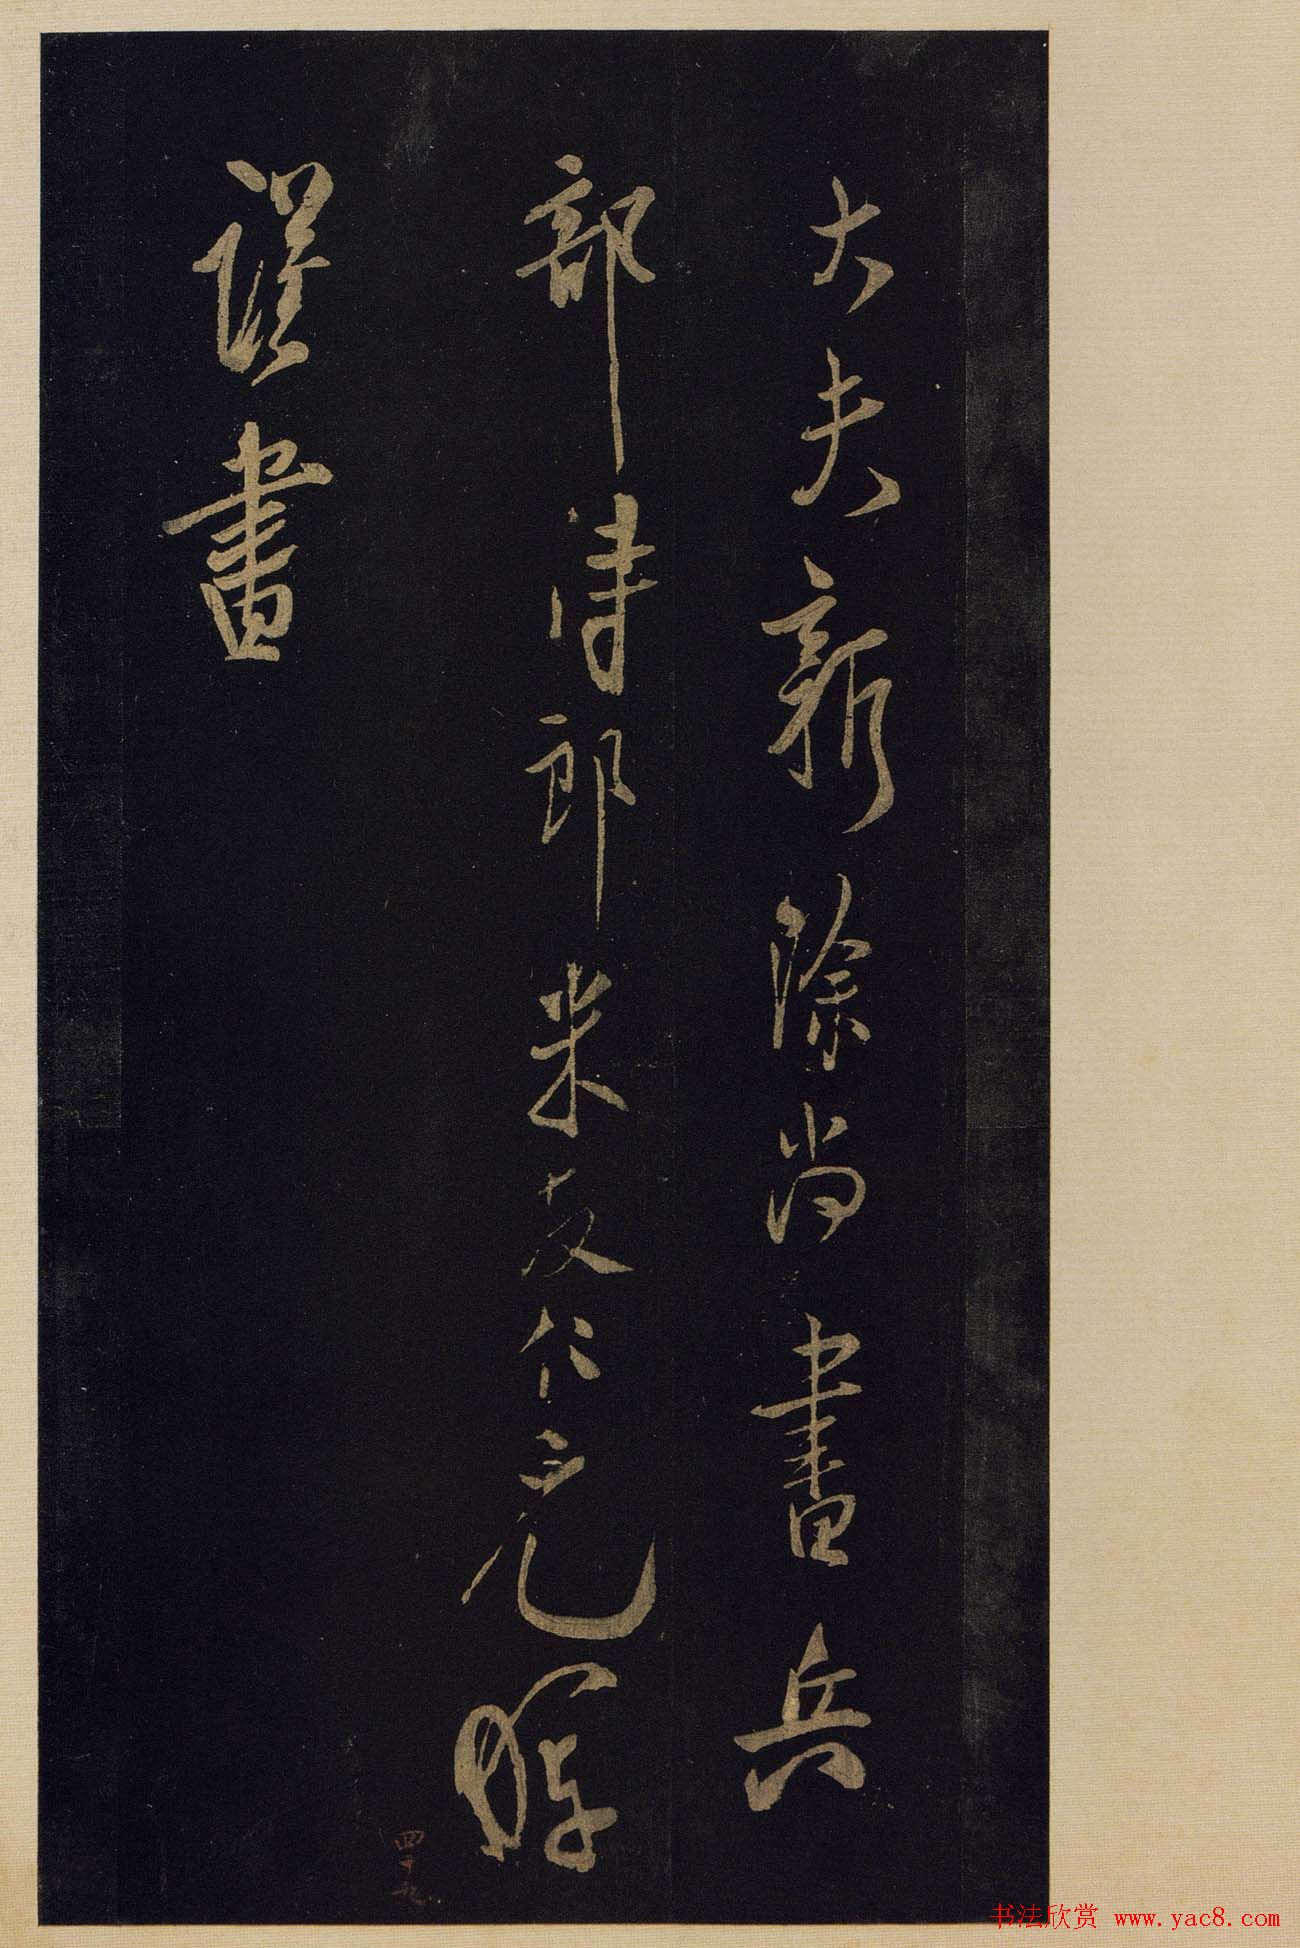 大夫新除尚書兵
部侍郎米友仁元暉
謹書
四十九
书法欣赏 www.yac8.com